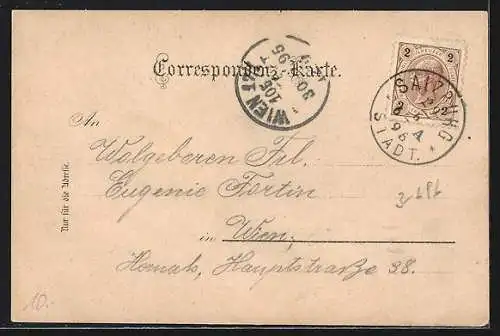 Correspondenz-Karte.
WIEN 105
95
2 2
2 2
SALZBURG
STADT.
An
Wolgeboren Frl.
Eugenie Fortin
in Wien,
Hernals, Hauptstraße 98.
Nur für die Adresse.
10.-